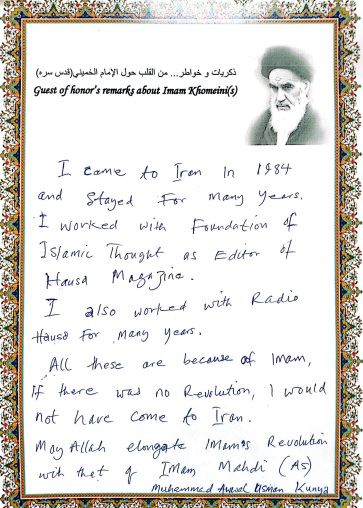 ذكريات و خواطر... من القلب حول الإمام الخميني(قدس سره)
Guest of honor's remarks about Imam Khomeini(s)
I came to Iran in 1984
and Stayed For Many Years.
I worked with Foundation of
Islamic Thought as Editor of
Hausa Magazine.
I also worked with Radio
Hausa For Many years.
All these are because of Imam,
If there was no Revolution, I would
not have come to Iran.
May Allah elongate Imam's Revolution
with that of Imam Mahdi (AS)
Muhammad Awwal Usman Kunya